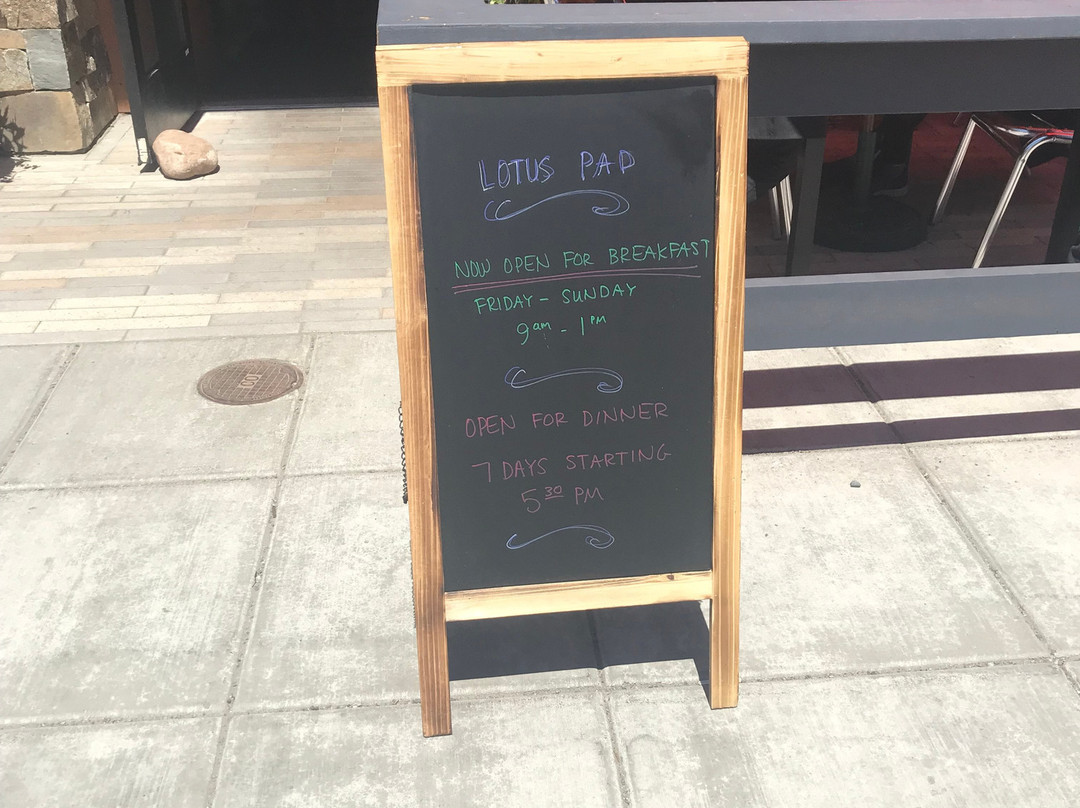 LOTUS PAD
NOW OPEN FOR BREAKFAST
FRIDAY - SUNDAY
9am - 1PM
OPEN FOR DINNER
7 DAYS STARTING
5 30 PM